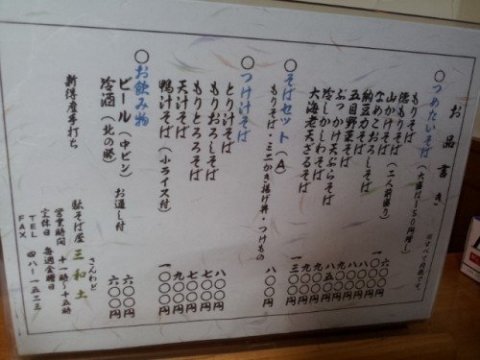 お品書き
※すべて内税です。
○つめたいそば(大盛は一五〇円増)
もりそば 六〇〇円
徳もりそば(二人前盛り) 一〇〇〇円
山かけそば
なめこおろしそば
納豆力そば
五目野菜そば
ぶっかけ天ぷらそば
冷しかしわそば
大海老天ざるそば 一三〇〇円
○そばセット(A)
もりそば・ミニかき揚げ丼・つけもの 八〇〇円
○つけ汁そば
とり汁そば 八〇〇円
もりおろしそば 七〇〇円
もりとろろそば 七〇〇円
天汁そば 九〇〇円
鴨汁そば(小ライス付) 一〇〇〇円
○お飲み物
ビール(中ビン)お通し付 六〇〇円
冷酒(北の勝) 六〇〇円
新得産手打ち
駄そば屋 三和土
さんわど
営業時間 十一時〜十五時
定休日 毎週金曜日
TEL
FAX 四八-一五二三